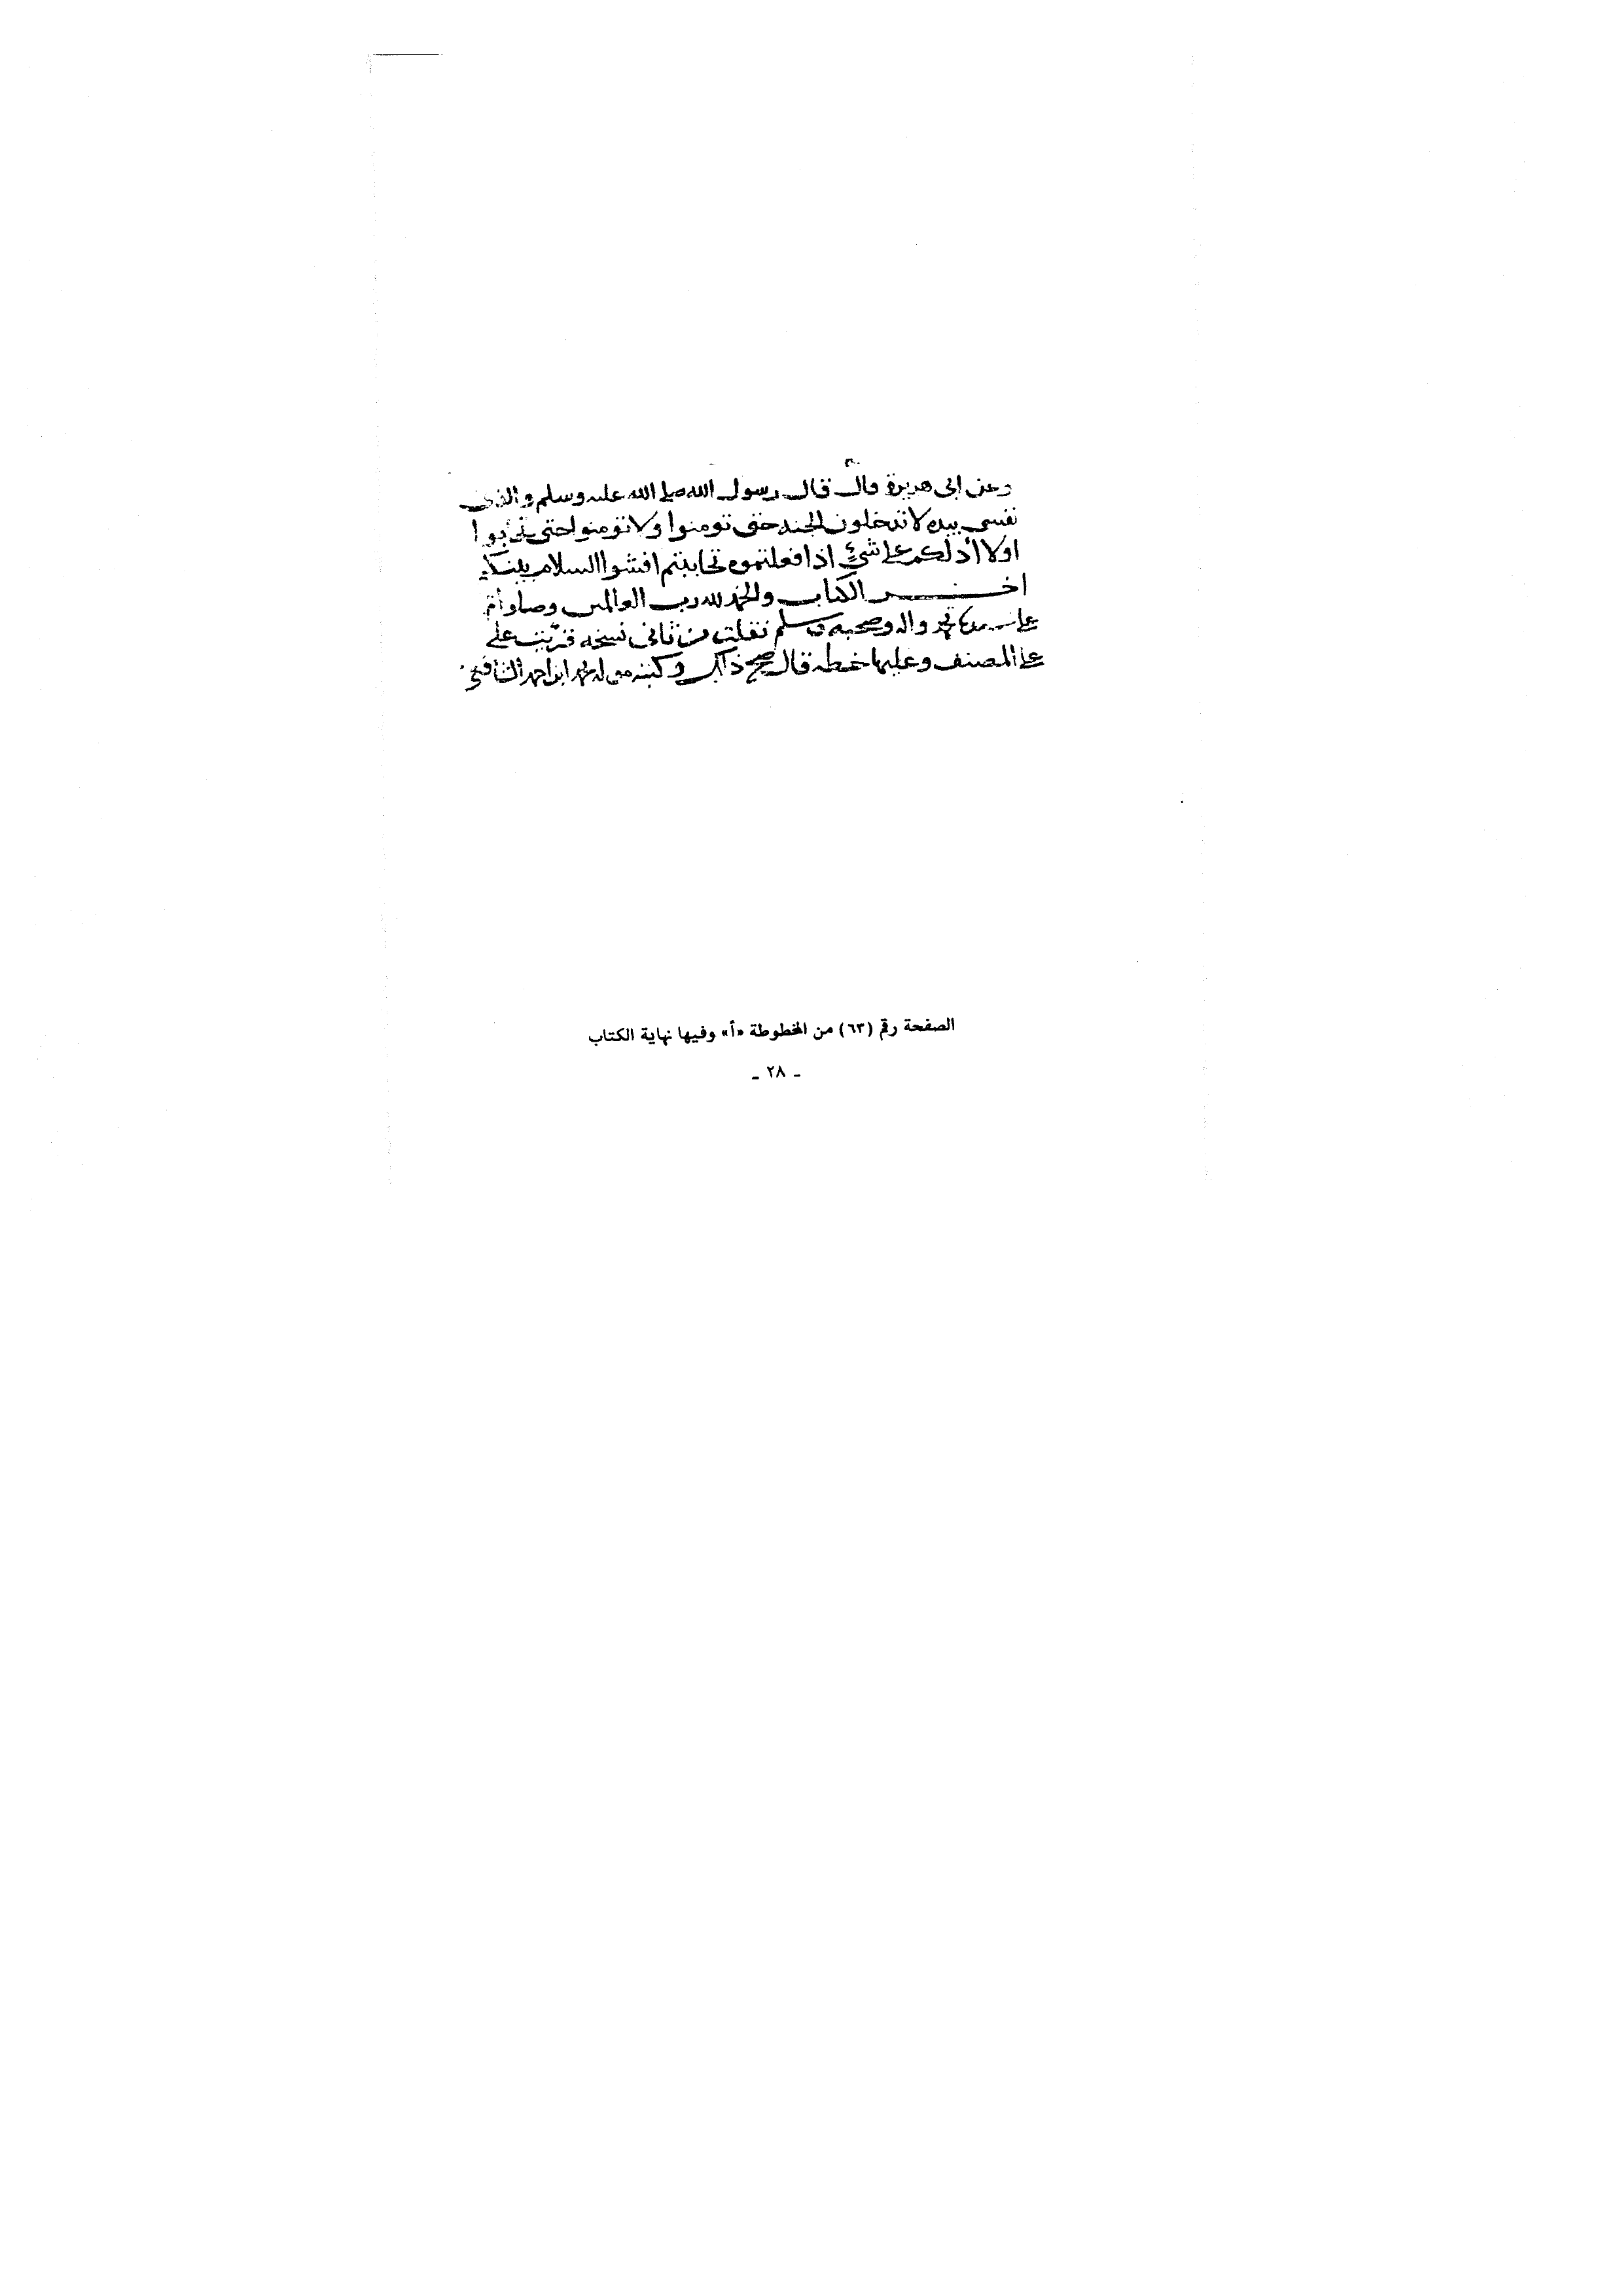 وعن ابى هريرة قال قال رسول الله صلى الله عليه وسلم والذى
نفسى بيده لا تدخلون الجنه حتى تومنوا ولا تؤمنوا حتى تحابوا
اولا أدلكم على شيئ اذا فعلتموه تحاببتم افشوا السلام بينكم
اخر الكتاب والحمد لله رب العالمين وصلواته
على سيدنا محمد واله وصحبه وسلم نقلت من ثانى نسخه قريت على
على المصنف وعليها خطه قال صح ذلك وكتبه محمد ابن احمد الشافعى
الصفحة رقم (٦٣) من المخطوطة «أ» وفيها نهاية الكتاب
ـ ٢٨ ـ